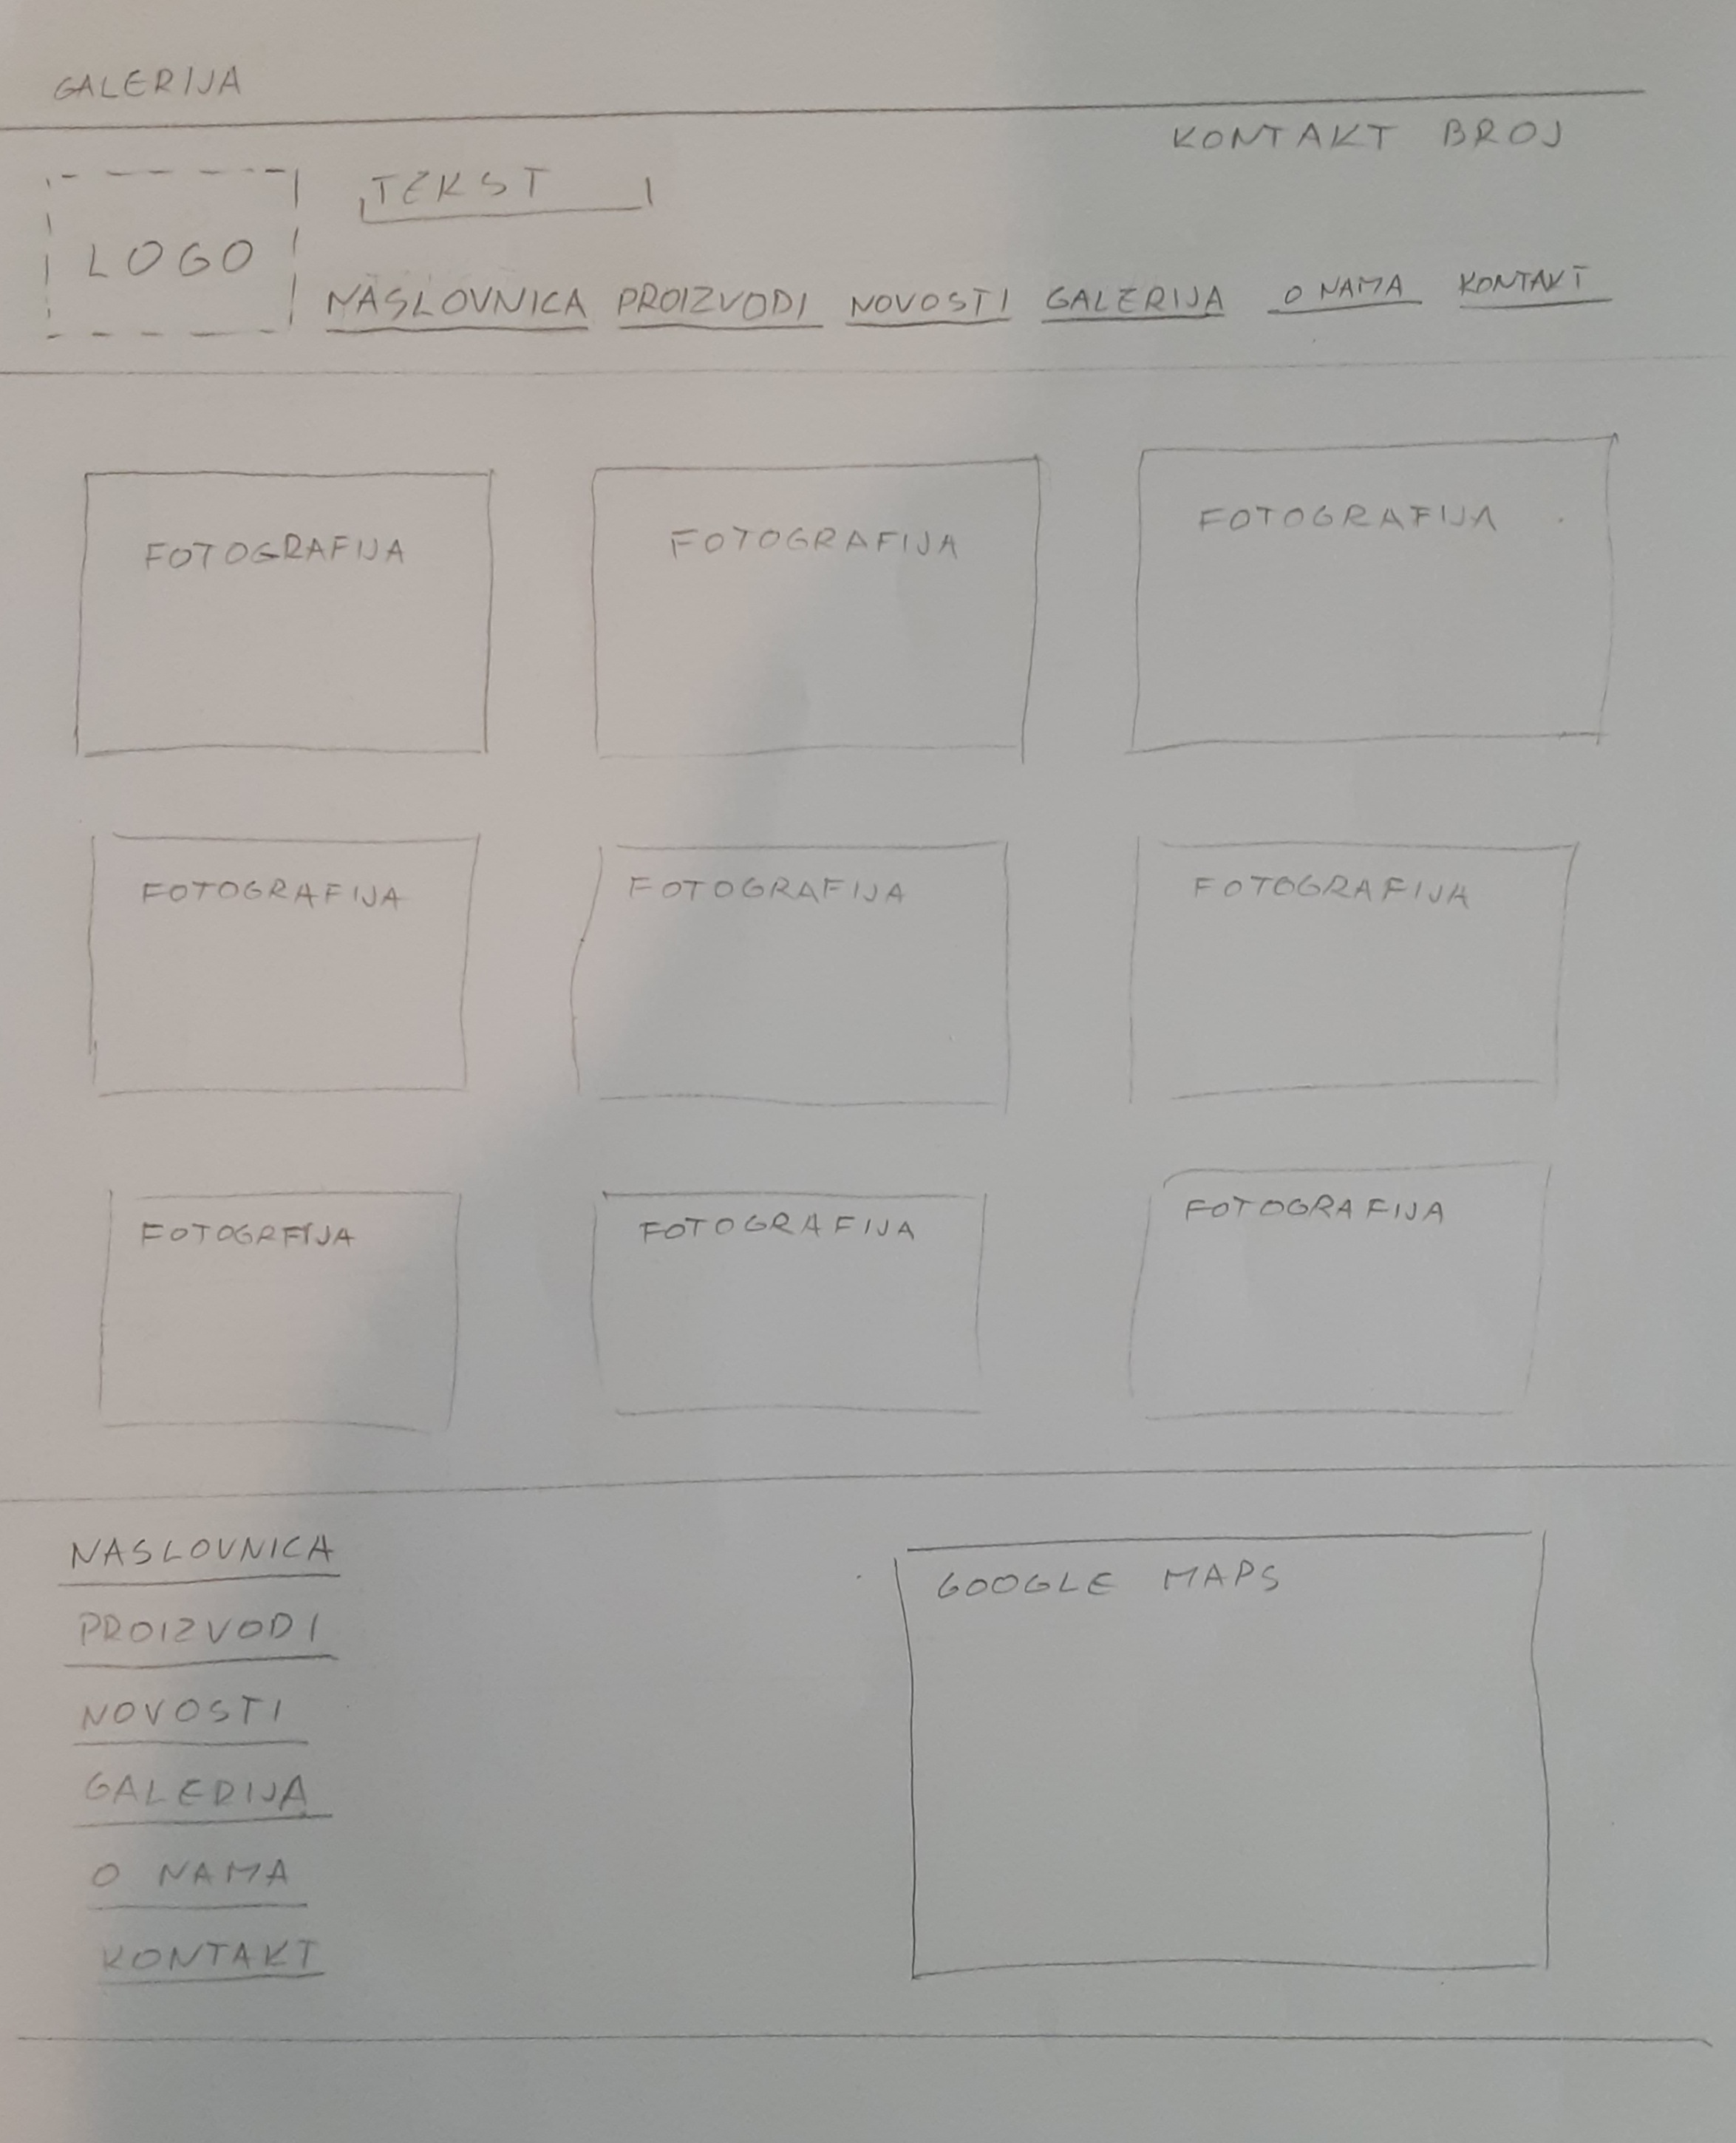 GALERIJA
KONTAKT BROJ
TEKST
LOGO
NASLOVNICA PROIZVODI NOVOSTI GALERIJA O NAMA KONTAKT
FOTOGRAFIJA FOTOGRAFIJA FOTOGRAFIJA
FOTOGRAFIJA FOTOGRAFIJA FOTOGRAFIJA
FOTOGRFIJA FOTOGRAFIJA FOTOGRAFIJA
NASLOVNICA
GOOGLE MAPS
PROIZVODI
NOVOSTI
GALERIJA
O NAMA
KONTAKT